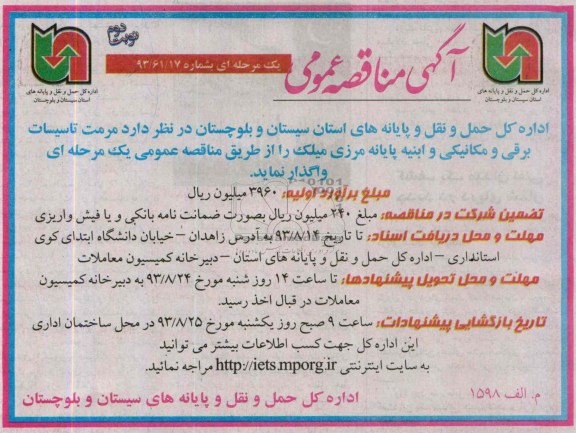 آگهی مناقصه عمومی
نوبت دوم
یک مرحله ای بشماره ۹۳/۶۱/۱۷
اداره کل حمل و نقل و پایانه های
استان سیستان و بلوچستان
اداره کل حمل و نقل و پایانه های
استان سیستان و بلوچستان
اداره کل حمل و نقل و پایانه های استان سیستان و بلوچستان در نظر دارد مرمت تاسیسات
برقی و مکانیکی و ابنیه پایانه مرزی میلک را از طریق مناقصه عمومی یک مرحله ای
واگذار نماید.
مبلغ برآورد اولیه: ۳۹۶۰ میلیون ریال
تضمین شرکت در مناقصه: مبلغ ۲۴۰ میلیون ریال بصورت ضمانت نامه بانکی و یا فیش واریزی
مهلت و محل دریافت اسناد: تا تاریخ ۹۳/۸/۱۴ به آدرس زاهدان – خیابان دانشگاه ابتدای کوی
استانداری – اداره کل حمل و نقل و پایانه های استان – دبیرخانه کمیسیون معاملات
مهلت و محل تحویل پیشنهادها: تا ساعت ۱۴ روز شنبه مورخ ۹۳/۸/۲۴ به دبیرخانه کمیسیون
معاملات در قبال اخذ رسید.
تاریخ بازگشایی پیشنهادات: ساعت ۹ صبح روز یکشنبه مورخ ۹۳/۸/۲۵ در محل ساختمان اداری
این اداره کل جهت کسب اطلاعات بیشتر می توانید
به سایت اینترنتی http://iets.mporg.ir مراجعه نمائید.
م: الف ۱۵۹۸
اداره کل حمل و نقل و پایانه های سیستان و بلوچستان